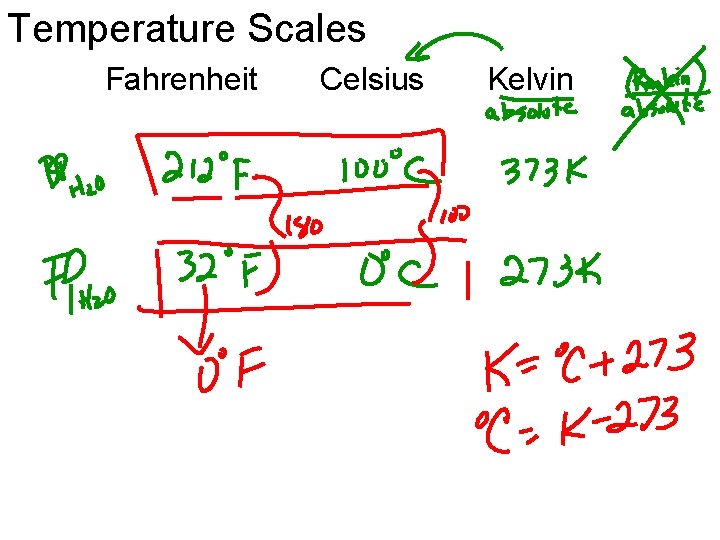 Temperature Scales
Fahrenheit Celsius Kelvin Rankin
absolute absolute
BP H2O 212°F 100°C 373K
180 100
FP H2O 32°F 0°C 273K
0°F
K = °C + 273
°C = K - 273